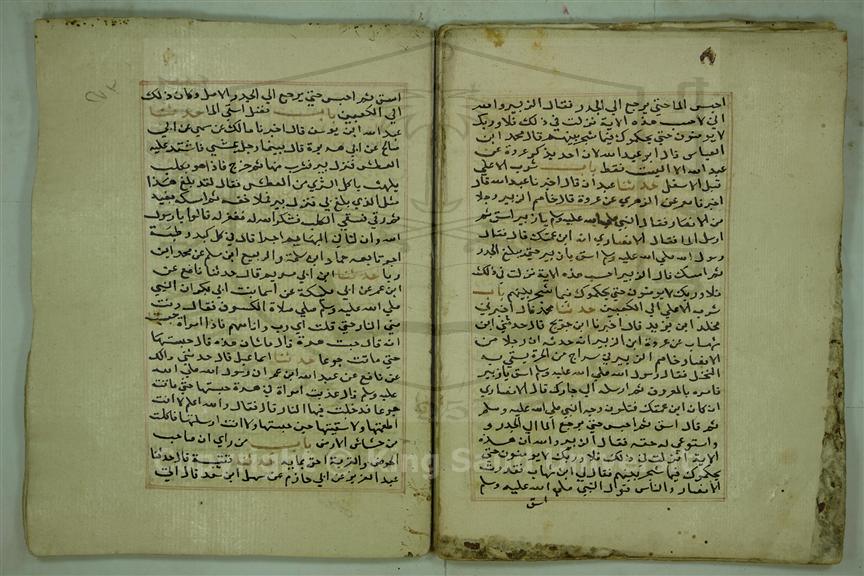 احبس الماحتي يرجع الي الجدر فقال الزبير والله
اني لاحسب هذه الاية نزلت في ذلك فلا وربك
لا يومنون حتي يحكموك فيما شجر بينهم قال محمد ابن
العباس قال ابو عبد الله لا احد يذكر عروة عن
عبد الله الا الليث فقط باب شرب الاعلي
قبل الاسفل حدثنا عبدان قال اخبرنا عبد الله قال
اخبرنا معمر عن الزهري عن عروة قال خاصم الزبير رجلا
من الانصار فقال النبي صلي الله عليه وسلم يا زبير اسق ثم
ارسل الما فقال الانصاري انه ابن عمتك فقال
رسول الله صلي الله عليه وسلم اسق يا زبير حتي يبلغ الجدر
ثم امسك قال الزبير احسب هذه الاية نزلت في ذلك
فلا وربك لا يومنون حتي يحكموك فيما شجر بينهم باب
شرب الاعلي الي الكعبين حدثنا محمد قال اخبرني
مخلد ابن يزيد قال اخبرنا ابن جريج قال حدثني ابن
شهاب عن عروة ابن الزبير انه حدثه ان رجلا من
الانصار خاصم الزبير في شراج من الحرة يسقي به
النخل فقال رسول الله صلي الله عليه وسلم اسق يا زبير
فامره بالمعروف ثم ارسله الي جارك قال الانصاري
ان كان ابن عمتك فتلون وجه النبي صلي الله عليه وسلم
ثم قال اسق ثم احبس حتي يرجع الما الي الجدر و
واستوعي له حقه فقال الزبير والله ان هذه
الاية انزلت في ذلك فلا وربك لا يومنون حتي
يحكموك فيما شجر بينهم فقال لي ابن شهاب فقدرت
الانصار والناس قول النبي صلي الله عليه وسلم
اسق
اسق ثم احبس حتي يرجع الي الجدر وكان ذلك
الي الكعبين باب فضل سقي الما حدثنا
عبد الله ابن يوسف قال اخبرنا مالك عن سمي عن ابي
صالح عن ابي هريرة قال بينما رجل يمشي فاشتد عليه
العطش فنزل بيرا فشرب منها ثم خرج فاذا هو بكلب
يلهث ياكل الثري من العطش فقال لقد بلغ هذا
مثل الذي بلغ بي فنزل بيرا فملا خفه ثم امسكه بفيه
ثم رقي فسقي الكلب فشكر الله له فغفر له قالوا يا رسول
الله وان لنا في البهايم اجرا قال في كل كبد رطبة
اجر تابعه حماد ابن سلمة والربيع ابن مسلم عن محمد ابن
زياد حدثنا ابن ابي مريم قال حدثنا نافع عن
ابن عمر عن ابي مليكة عن اسما بنت ابي بكر ان النبي
صلي الله عليه وسلم صلي صلاة الكسوف فقال دنت
مني النار حتي قلت اي رب وانا معهم فاذا امراة حسبت
انه قال تخدشها هرة قال ما شان هذه قال حبستها
حتي ماتت جوعا حدثنا اسماعيل قال حدثني مالك
عن نافع عن عبد الله ابن عمر ان رسول الله صلي الله
عليه وسلم قال عذبت امراة في هرة حبستها حتي ماتت
جوعا فدخلت فيها النار قال فقال والله اعلم لا انت
اطعمتها ولا سقيتها حين حبستها ولا انت ارسلتها فاكلت
من خشاش الارض باب من راي ان صاحب
الحوض والقربة احق بمايه حدثنا قتيبة قال حدثنا
عبد العزيز عن ابي حازم عن سهل ابن سعد قال اتي